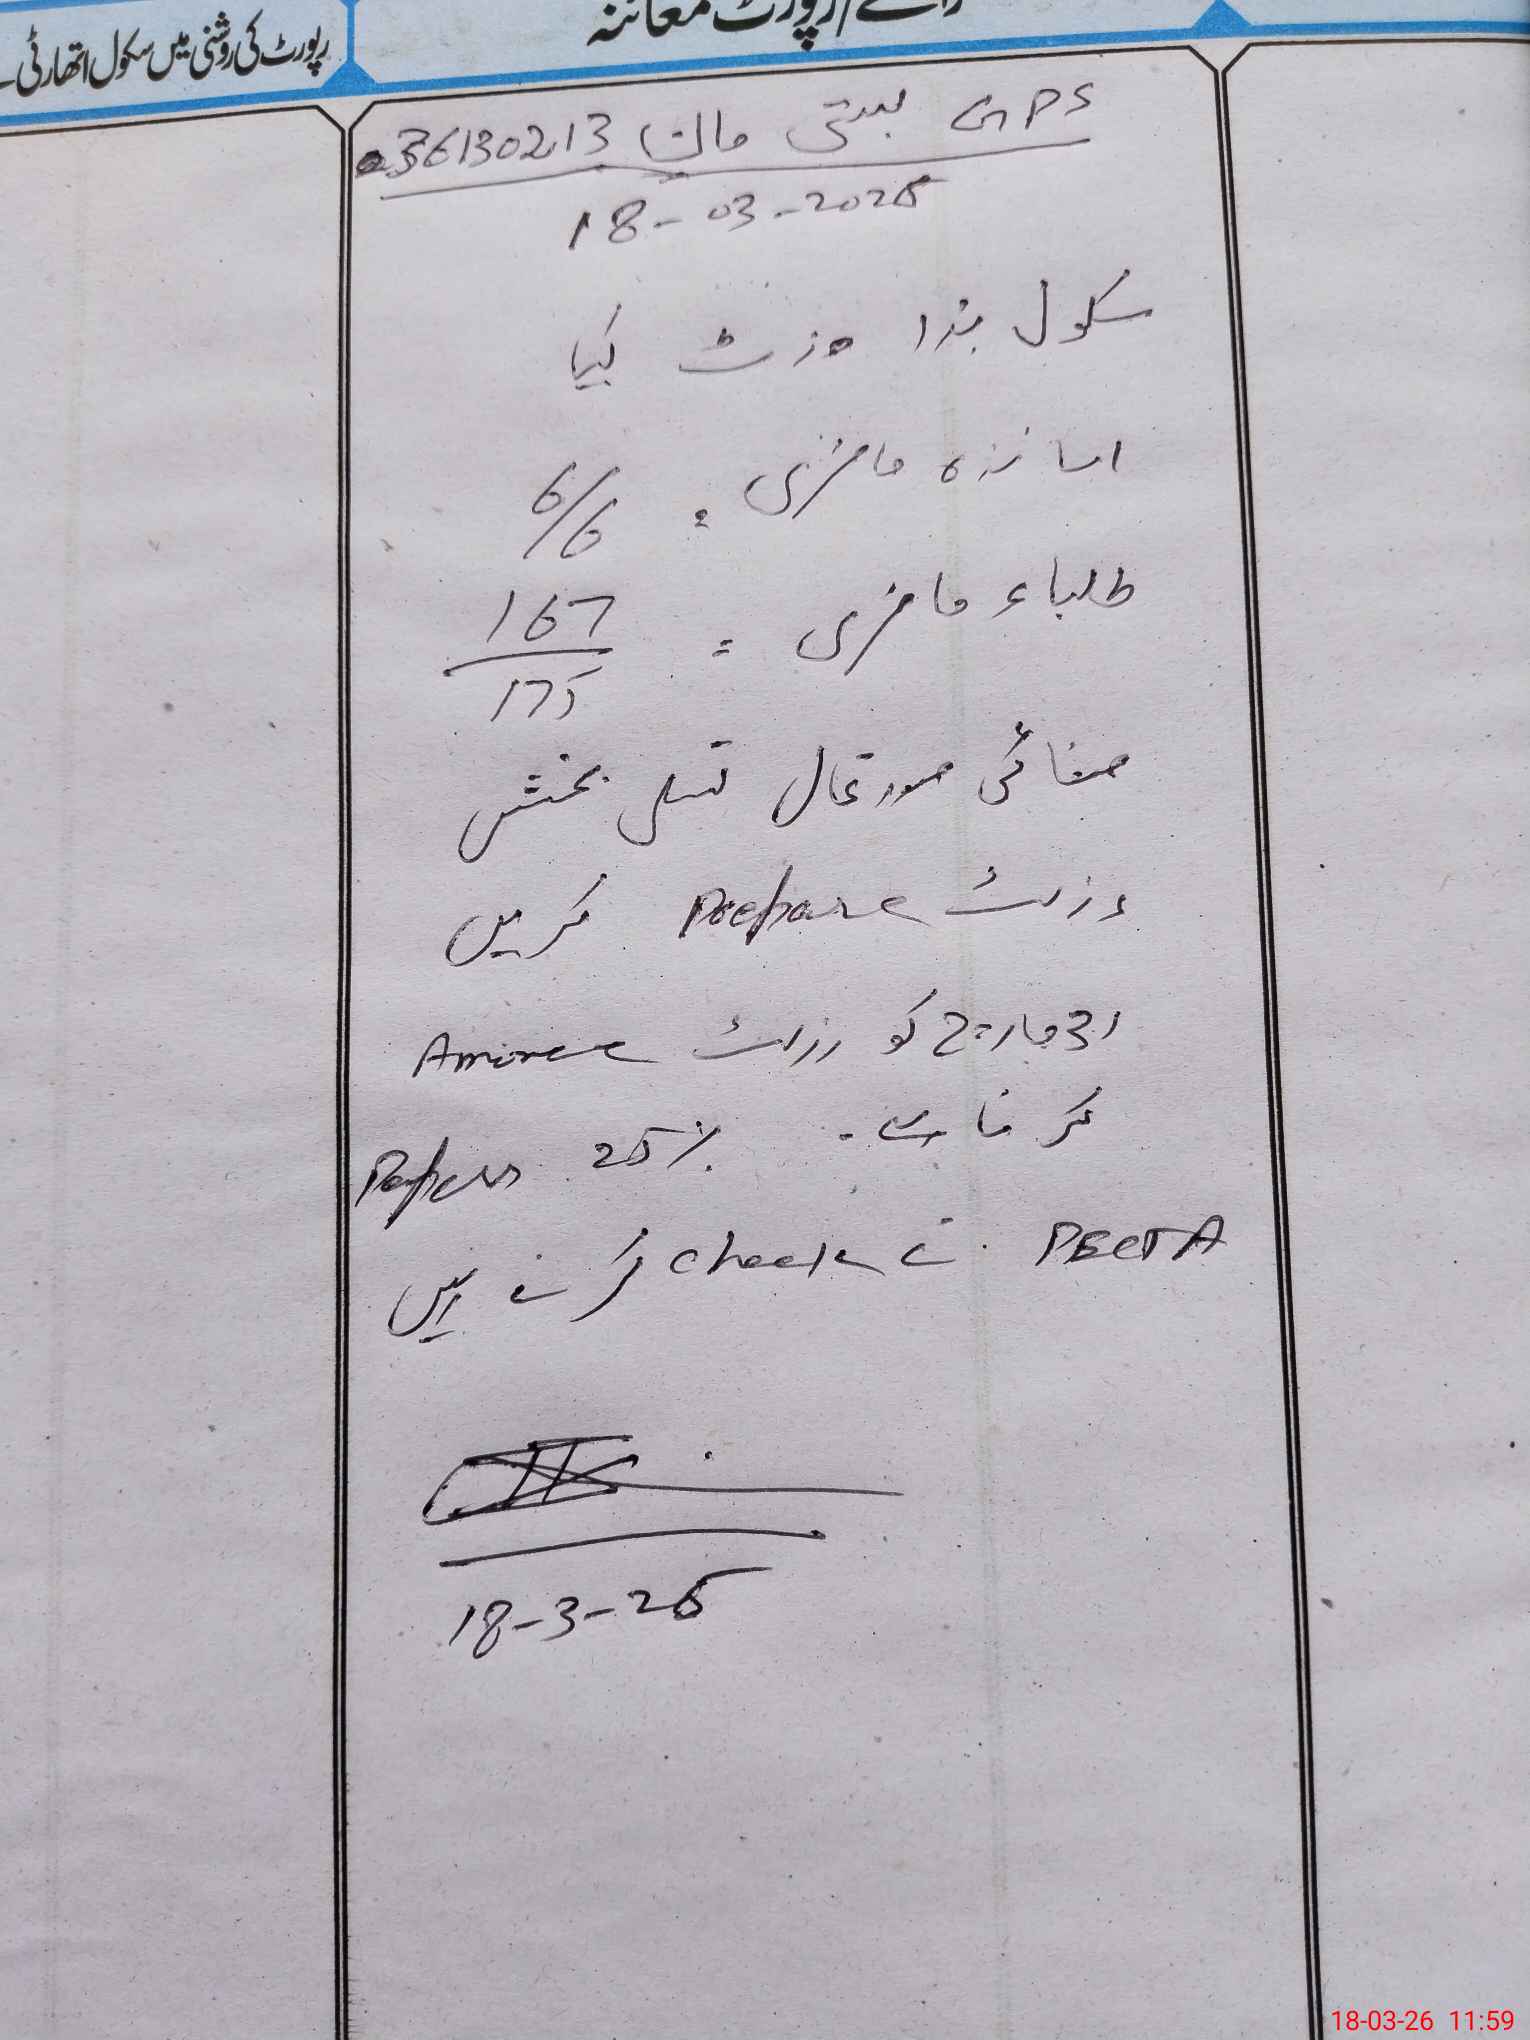 رپورٹ کی روشنی میں سکول اتھارٹی
رائے/رپورٹ معائنہ
GPS بستی مان 36130213
18-03-2026
سکول ہذا وزٹ کیا
اساتذہ حاضری = 6/6
طلباء حاضری = 167/175
صفائی صورتحال تسلی بخش
رزلٹ Prepare کریں
31 مارچ کو رزلٹ
کرنا ہے۔ 25% Papers
PECTA نے check کرنے ہیں
18-3-26
18-03-26 11:59